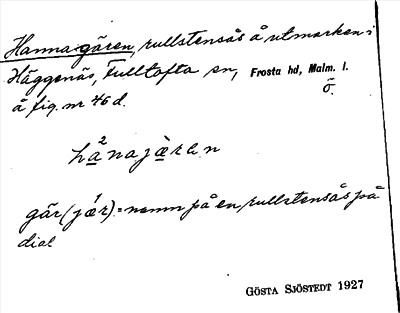 Hannagären, rullstensås å utmarken i
Häggenäs, Fulltofta sn, Frosta hd, Malm. l.
å fig. nr 46 d. ö.
gär (jǽr) = namn på en rullstensås på
dial
GÖSTA SJÖSTEDT 1927